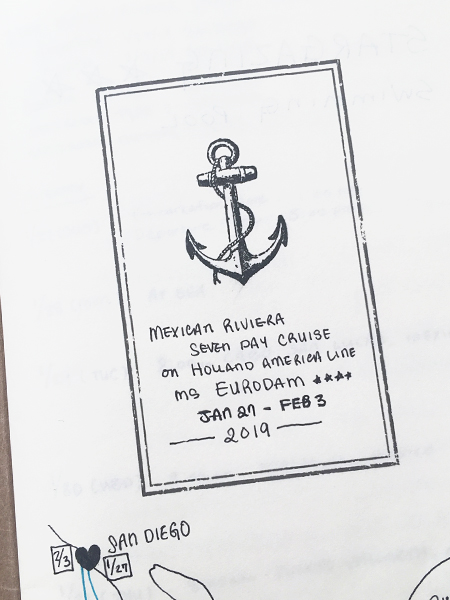 MEXICAN RIVIERA
SEVEN DAY CRUISE
ON HOLLAND AMERICA LINE
MS EURODAM ★★★★
JAN 27 - FEB 3
2019
SAN DIEGO
2/3
1/27